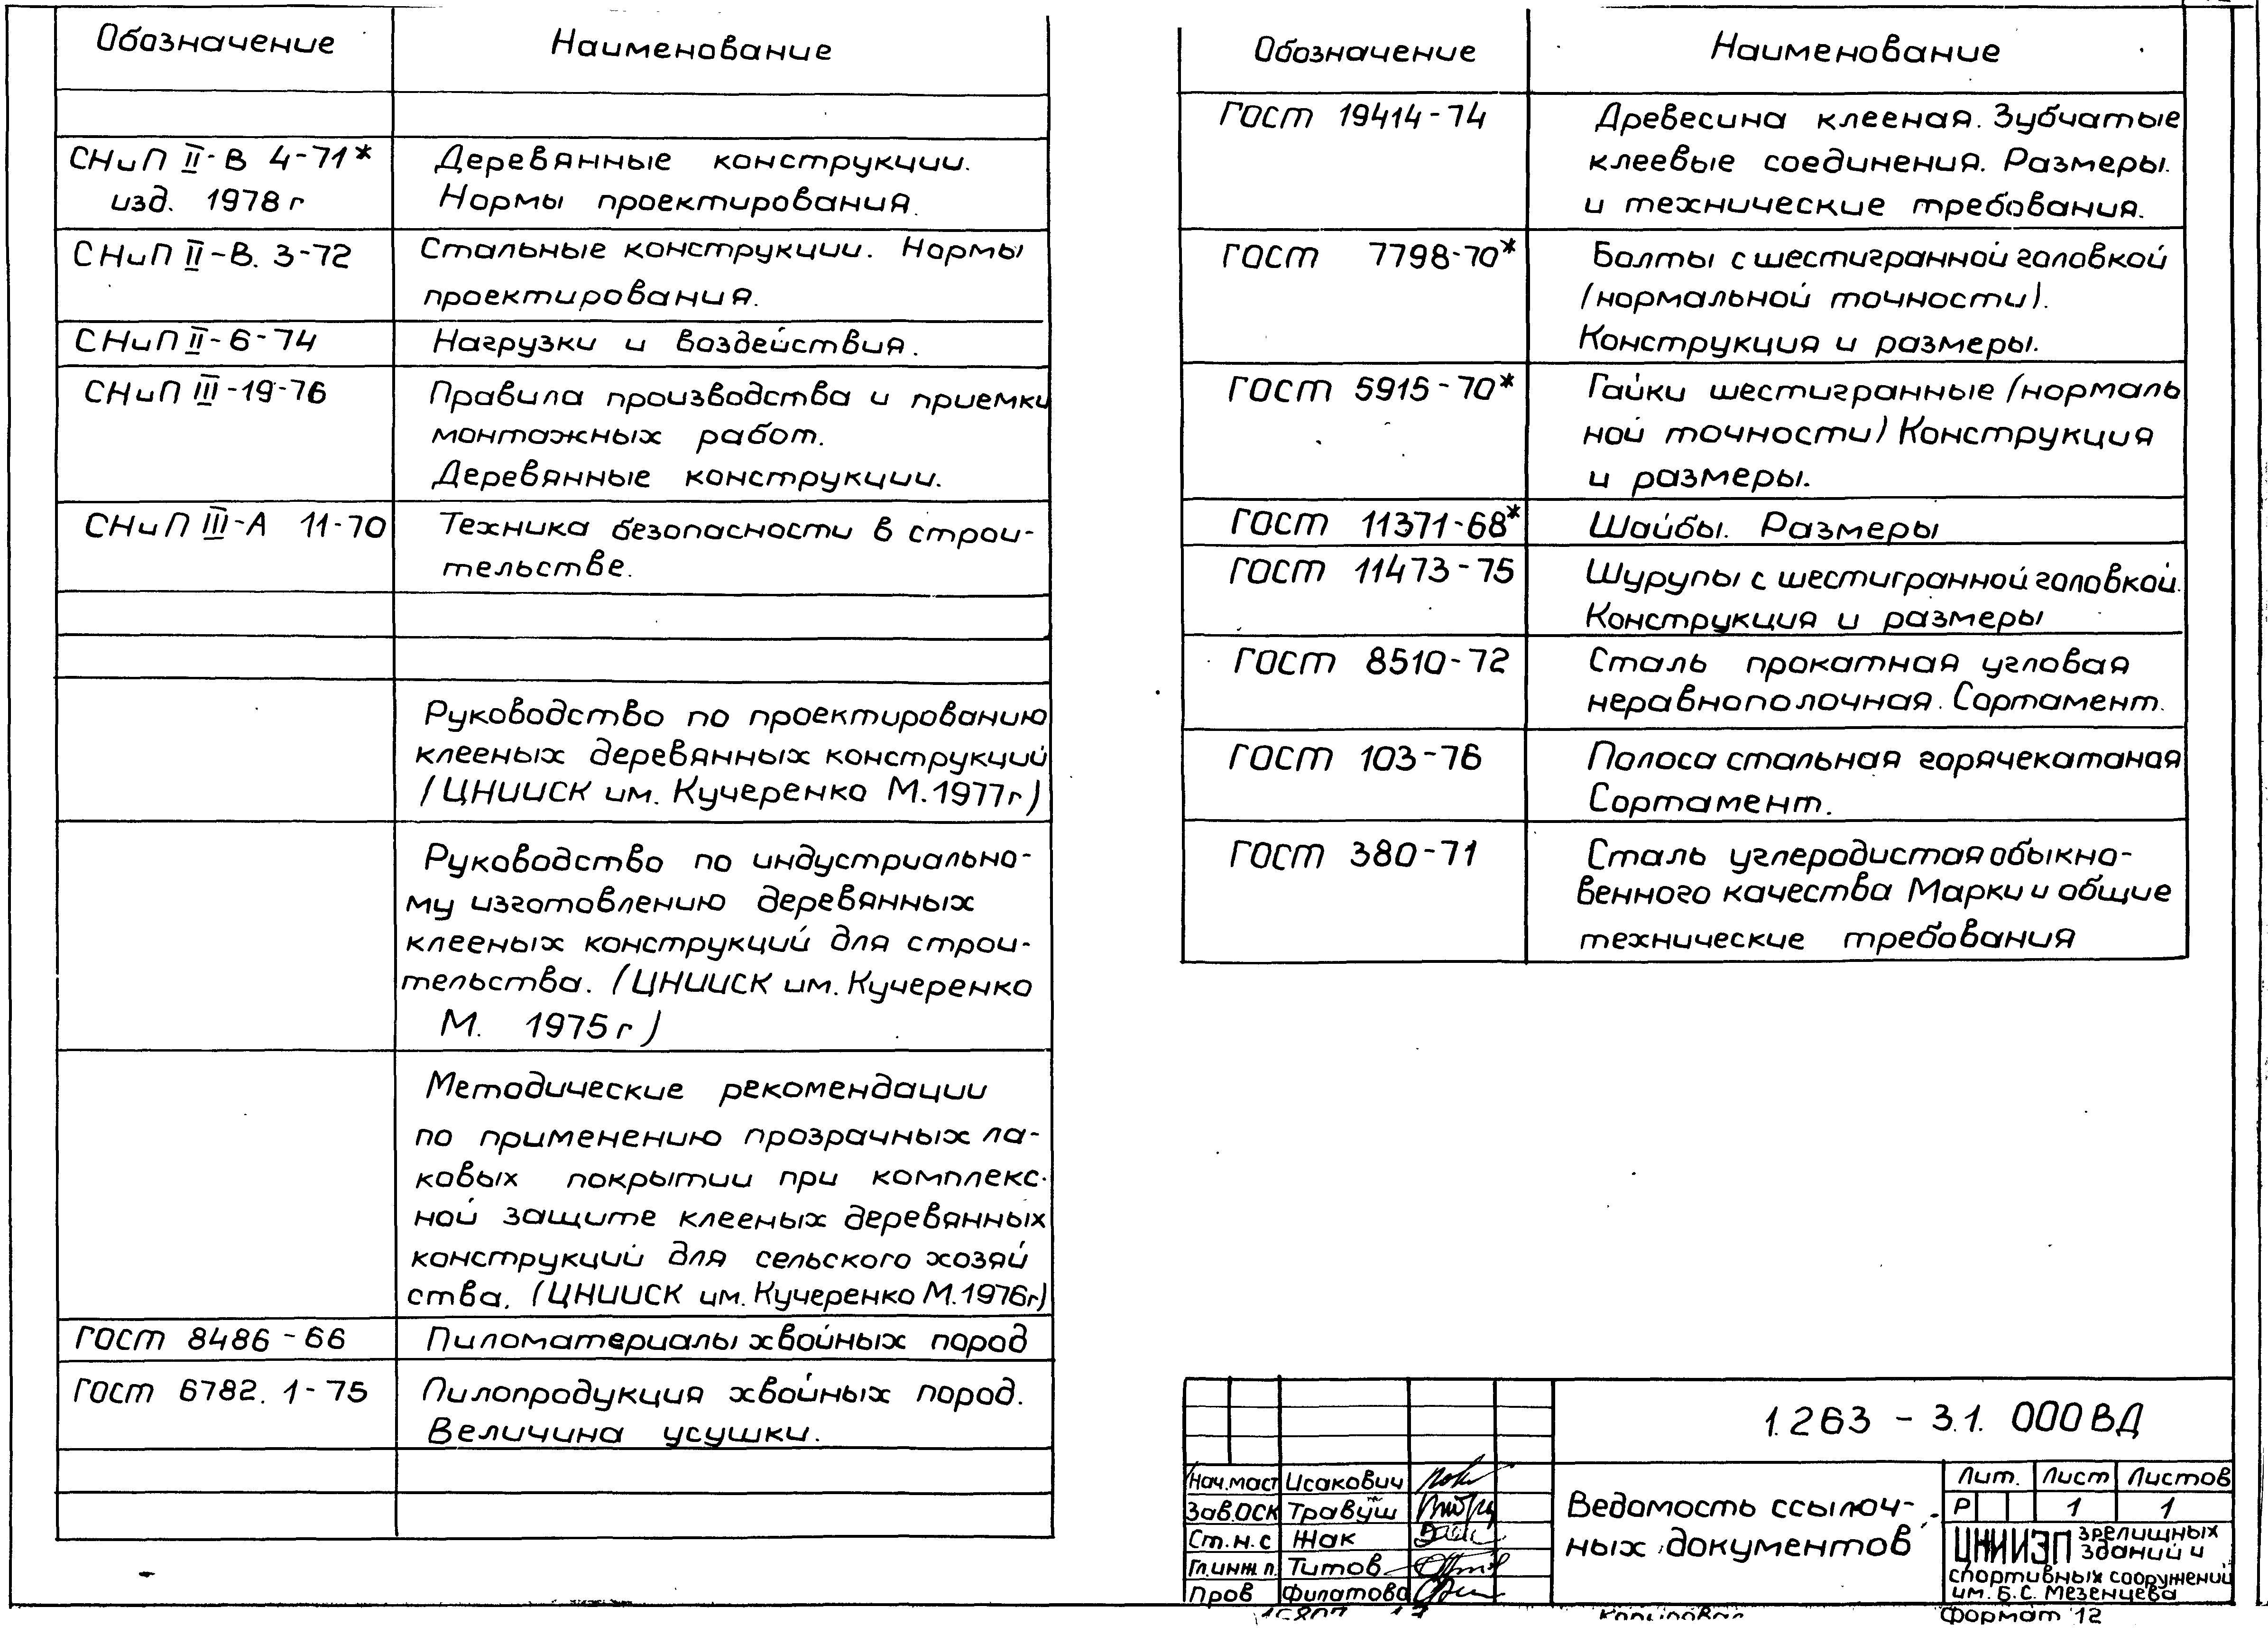 Обозначение
Наименование
СНиП II-В 4-71*
изд. 1978 г
Деревянные конструкции.
Нормы проектирования.
СНиП II-В. 3-72
Стальные конструкции. Нормы
проектирования.
СНиП II-6-74
Нагрузки и воздействия.
СНиП III-19-76
Правила производства и приемки
монтажных работ.
Деревянные конструкции.
СНиП III-А 11-70
Техника безопасности в строи-
тельстве.
Руководство по проектированию
клееных деревянных конструкций
(ЦНИИСК им. Кучеренко М.1977г)
Руководство по индустриально-
му изготовлению деревянных
клееных конструкций для строи-
тельства. (ЦНИИСК им. Кучеренко
М. 1975г)
Методические рекомендации
по применению прозрачных ла-
ковых покрытии при комплекс-
ной защите клееных деревянных
конструкций для сельского хозяй
ства. (ЦНИИСК им. Кучеренко М.1976г)
ГОСТ 8486-66
Пиломатериалы хвойных пород
ГОСТ 6782.1-75
Пилопродукция хвойных пород.
Величина усушки.
Обозначение
Наименование
ГОСТ 19414-74
Древесина клееная. Зубчатые
клеевые соединения. Размеры.
и технические требования.
ГОСТ 7798-70*
Болты с шестигранной головкой
(нормальной точности).
Конструкция и размеры.
ГОСТ 5915-70*
Гайки шестигранные (нормаль
ной точности) Конструкция
и размеры.
ГОСТ 11371-68*
Шайбы. Размеры
ГОСТ 11473-75
Шурупы с шестигранной головкой.
Конструкция и размеры
ГОСТ 8510-72
Сталь прокатная угловая
неравнополочная. Сортамент.
ГОСТ 103-76
Полоса стальная горячекатаная
Сортамент.
ГОСТ 380-71
Сталь углеродистая обыкно-
венного качества Марки и общие
технические требования
1.263 - 3.1. 000 ВД
Нач.маст Исакович
Зав.ОСК Травуш
Ст.н.с Жак
Гл.инж.п. Титов
Пров Филатова
Ведомость ссылоч-
ных документов
Лит. Лист Листов
Р 1 1
ЦНИИЭП зрелищных
зданий и
спортивных сооружений
им. Б.С. Мезенцева
Копировал
Формат 12